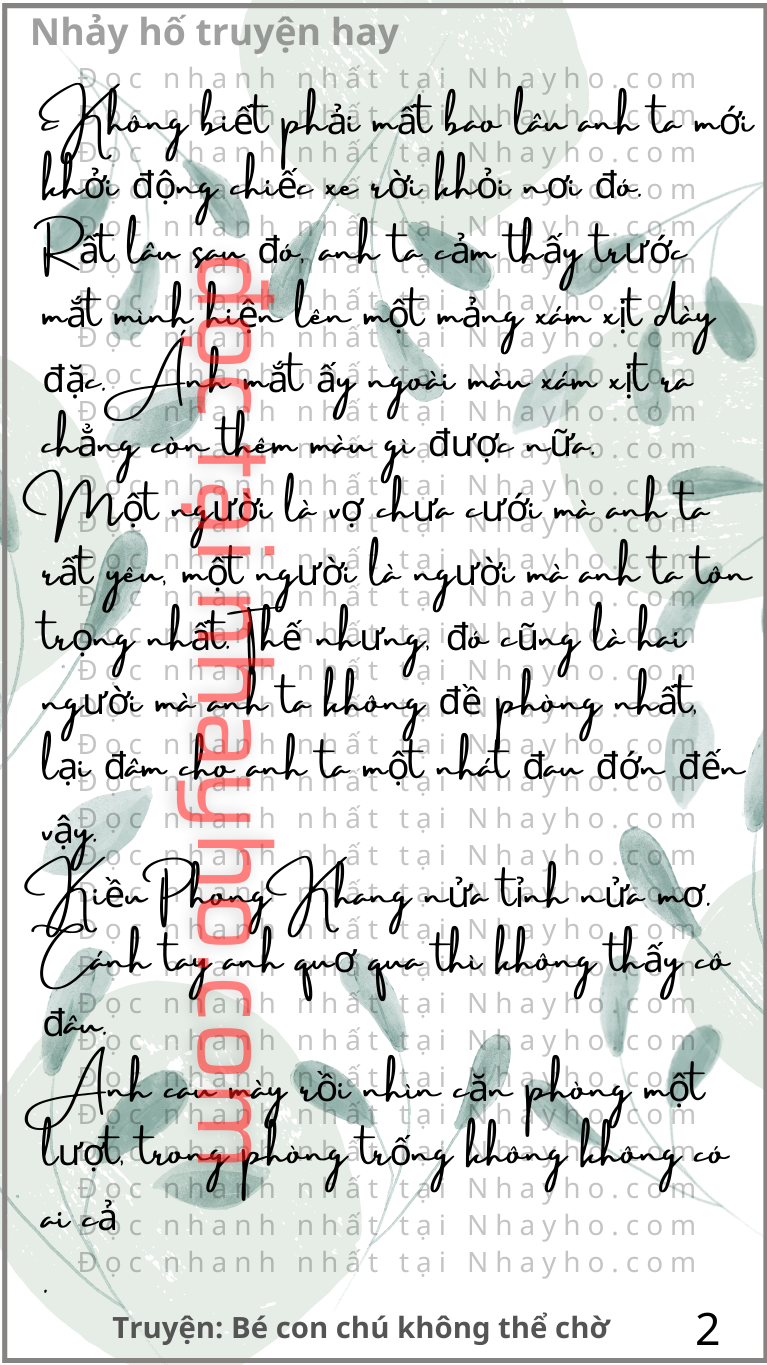 Nhảy hố truyện hay
Đọc nhanh nhất tại Nhayho.com
Không biết phải mất bao lâu anh ta mới
khởi động chiếc xe rời khỏi nơi đó.
Rất lâu sau đó, anh ta cảm thấy trước
mắt mình hiện lên một mảng xám xịt dày
đặc. Ánh mắt ấy ngoài màu xám xịt ra
chẳng còn thêm màu gì được nữa.
Một người là vợ chưa cưới mà anh ta
rất yêu, một người là người mà anh ta tôn
trọng nhất. Thế nhưng, đó cũng là hai
người mà anh ta không đề phòng nhất,
lại đâm cho anh ta một nhát đau đớn đến
vậy.
Kiều Phong Khang nửa tỉnh nửa mơ.
Cánh tay anh quơ qua thì không thấy cô
đâu.
Anh cau mày rồi nhìn căn phòng một
lượt, trong phòng trống không không có
ai cả
.
đọc tại nhayho.com
Truyện: Bé con chú không thể chờ
2